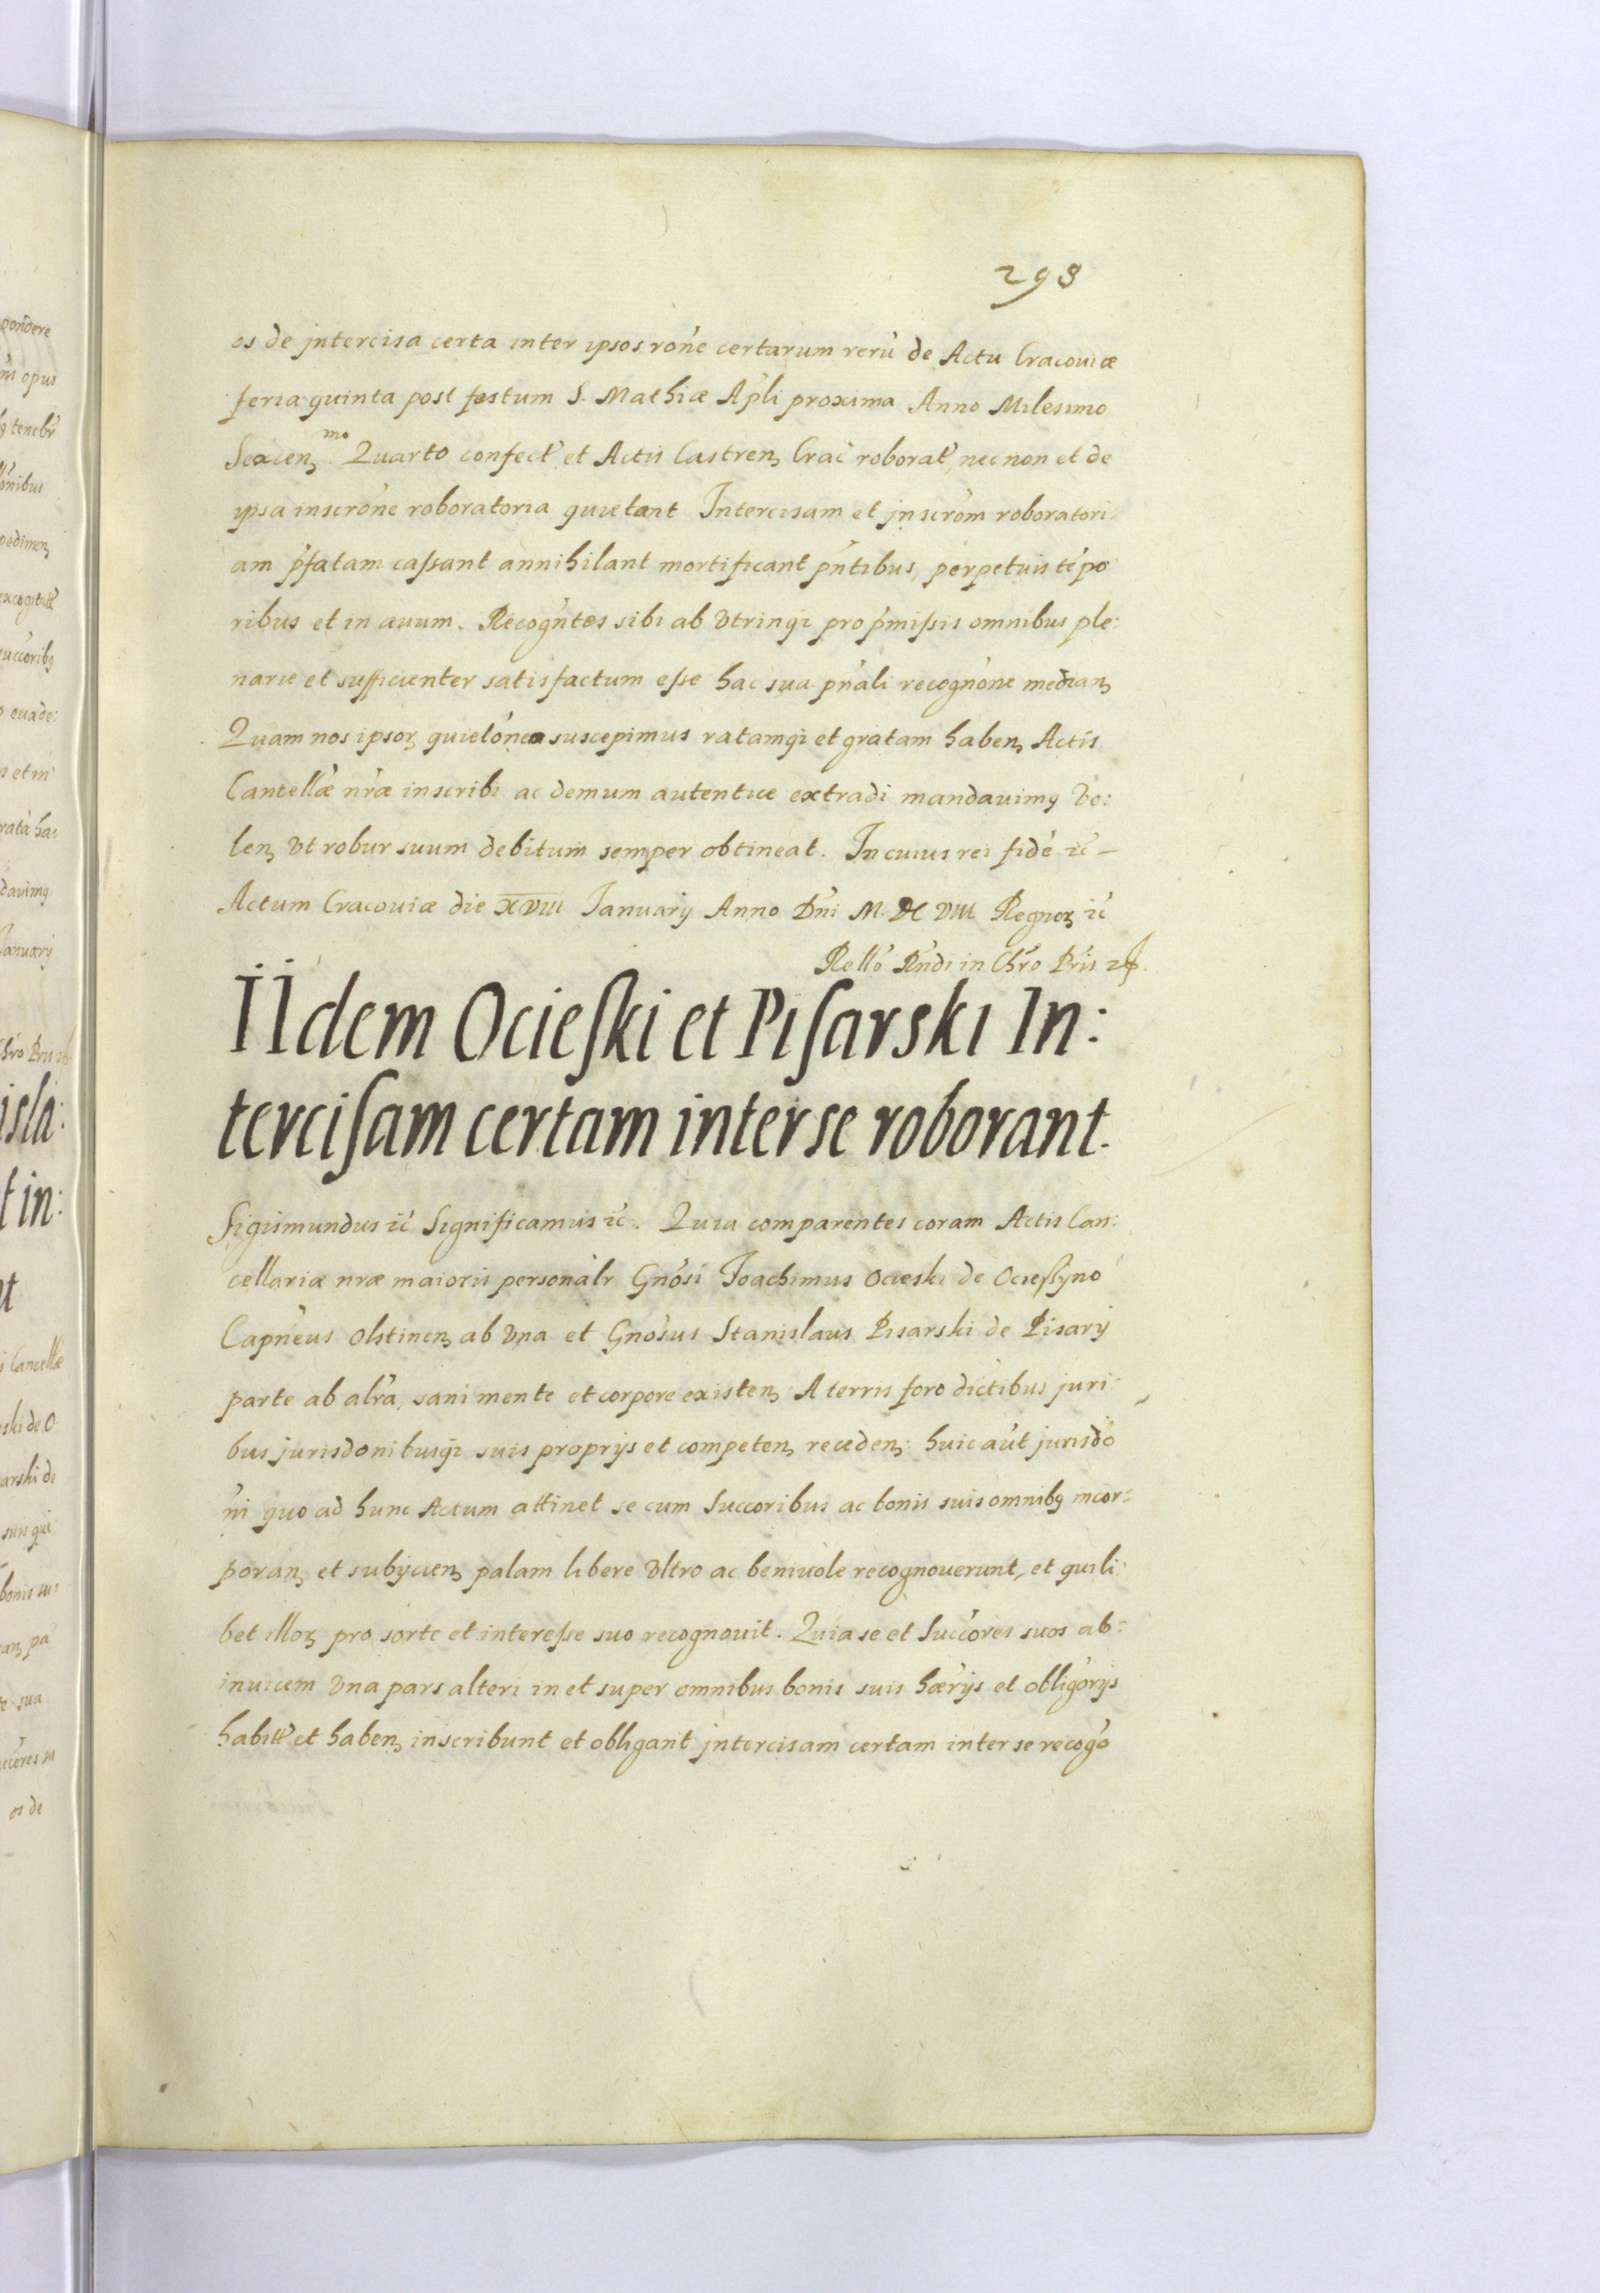 298
os de jntercisa certa inter ipsos rõne certarum rerũ de Actu Cracouiæ
feria quinta post festum S. Mathiæ Apli proxima Anno Milesimo
Sexcenꝫ mo Quarto confect et Actis Castrenꝫ Crac roborat nec non et de
ipsa inscrõne roboratoria quietant Intercisam et jnscrõm roboratori
am pfatam caßant annihilant mortificant pntibus, perpetuis tẽpo
ribus et in æuum. Recogntes sibi ab Vtrinqȝ pro pmißis omnibus ple:
narie et sufficienter satisfactum eße hac sua pnali recognõne medianꝫ
Quam nos ipsoꝝ quietõnem suscepimus ratamqȝ et gratam habenꝫ Actis
Cancellæ nræ inscribi ac demum autentice extradi mandauimꝰ Vo:
lenꝫ Vt robur suum debitum semper obtineat. In cuius rei fidẽ ⁊c̃ –
Actum Cracouiæ die XVIII January Anno Dni M. DC VIII Regnoꝝ ⁊c̃
Rello Rndi in Chro Pris
IIdem Ocieſki et Piſarski In:
terciſam certam inter se roborant.
Sigismundus ⁊c̃ Significamus ⁊c̃. Quia comparentes coram Actis Can:
cellariæ nræ maioris personalr Gnosi Joachimus Ocieski de Ocießyno
Capneus Olstinenꝫ ab Vna et Gnosus Stanislaus Pisarski de Pisary
parte ab alra, sani mente et corpore existenꝫ A terris foro dictibus juri:
bus jurisdonibusqȝ suis proprys et competenꝫ recedenꝫ: huic aut jurisdo
ni quo ad hunc Actum attinet se cum Succoribus ac bonis suis omnibꝰ incor:
poranꝫ et subycienꝫ palam libere Vltro ac beniuole recognouerunt, et quili:
bet illoꝝ pro sorte et intereße suo recognouit. Quia se et Succores suos ab:
inuicem Vna pars alteri in et super omnibus bonis suis hærys et obligorys
habitt et habenꝫ inscribunt et obligant jntercisam certam inter se recogo